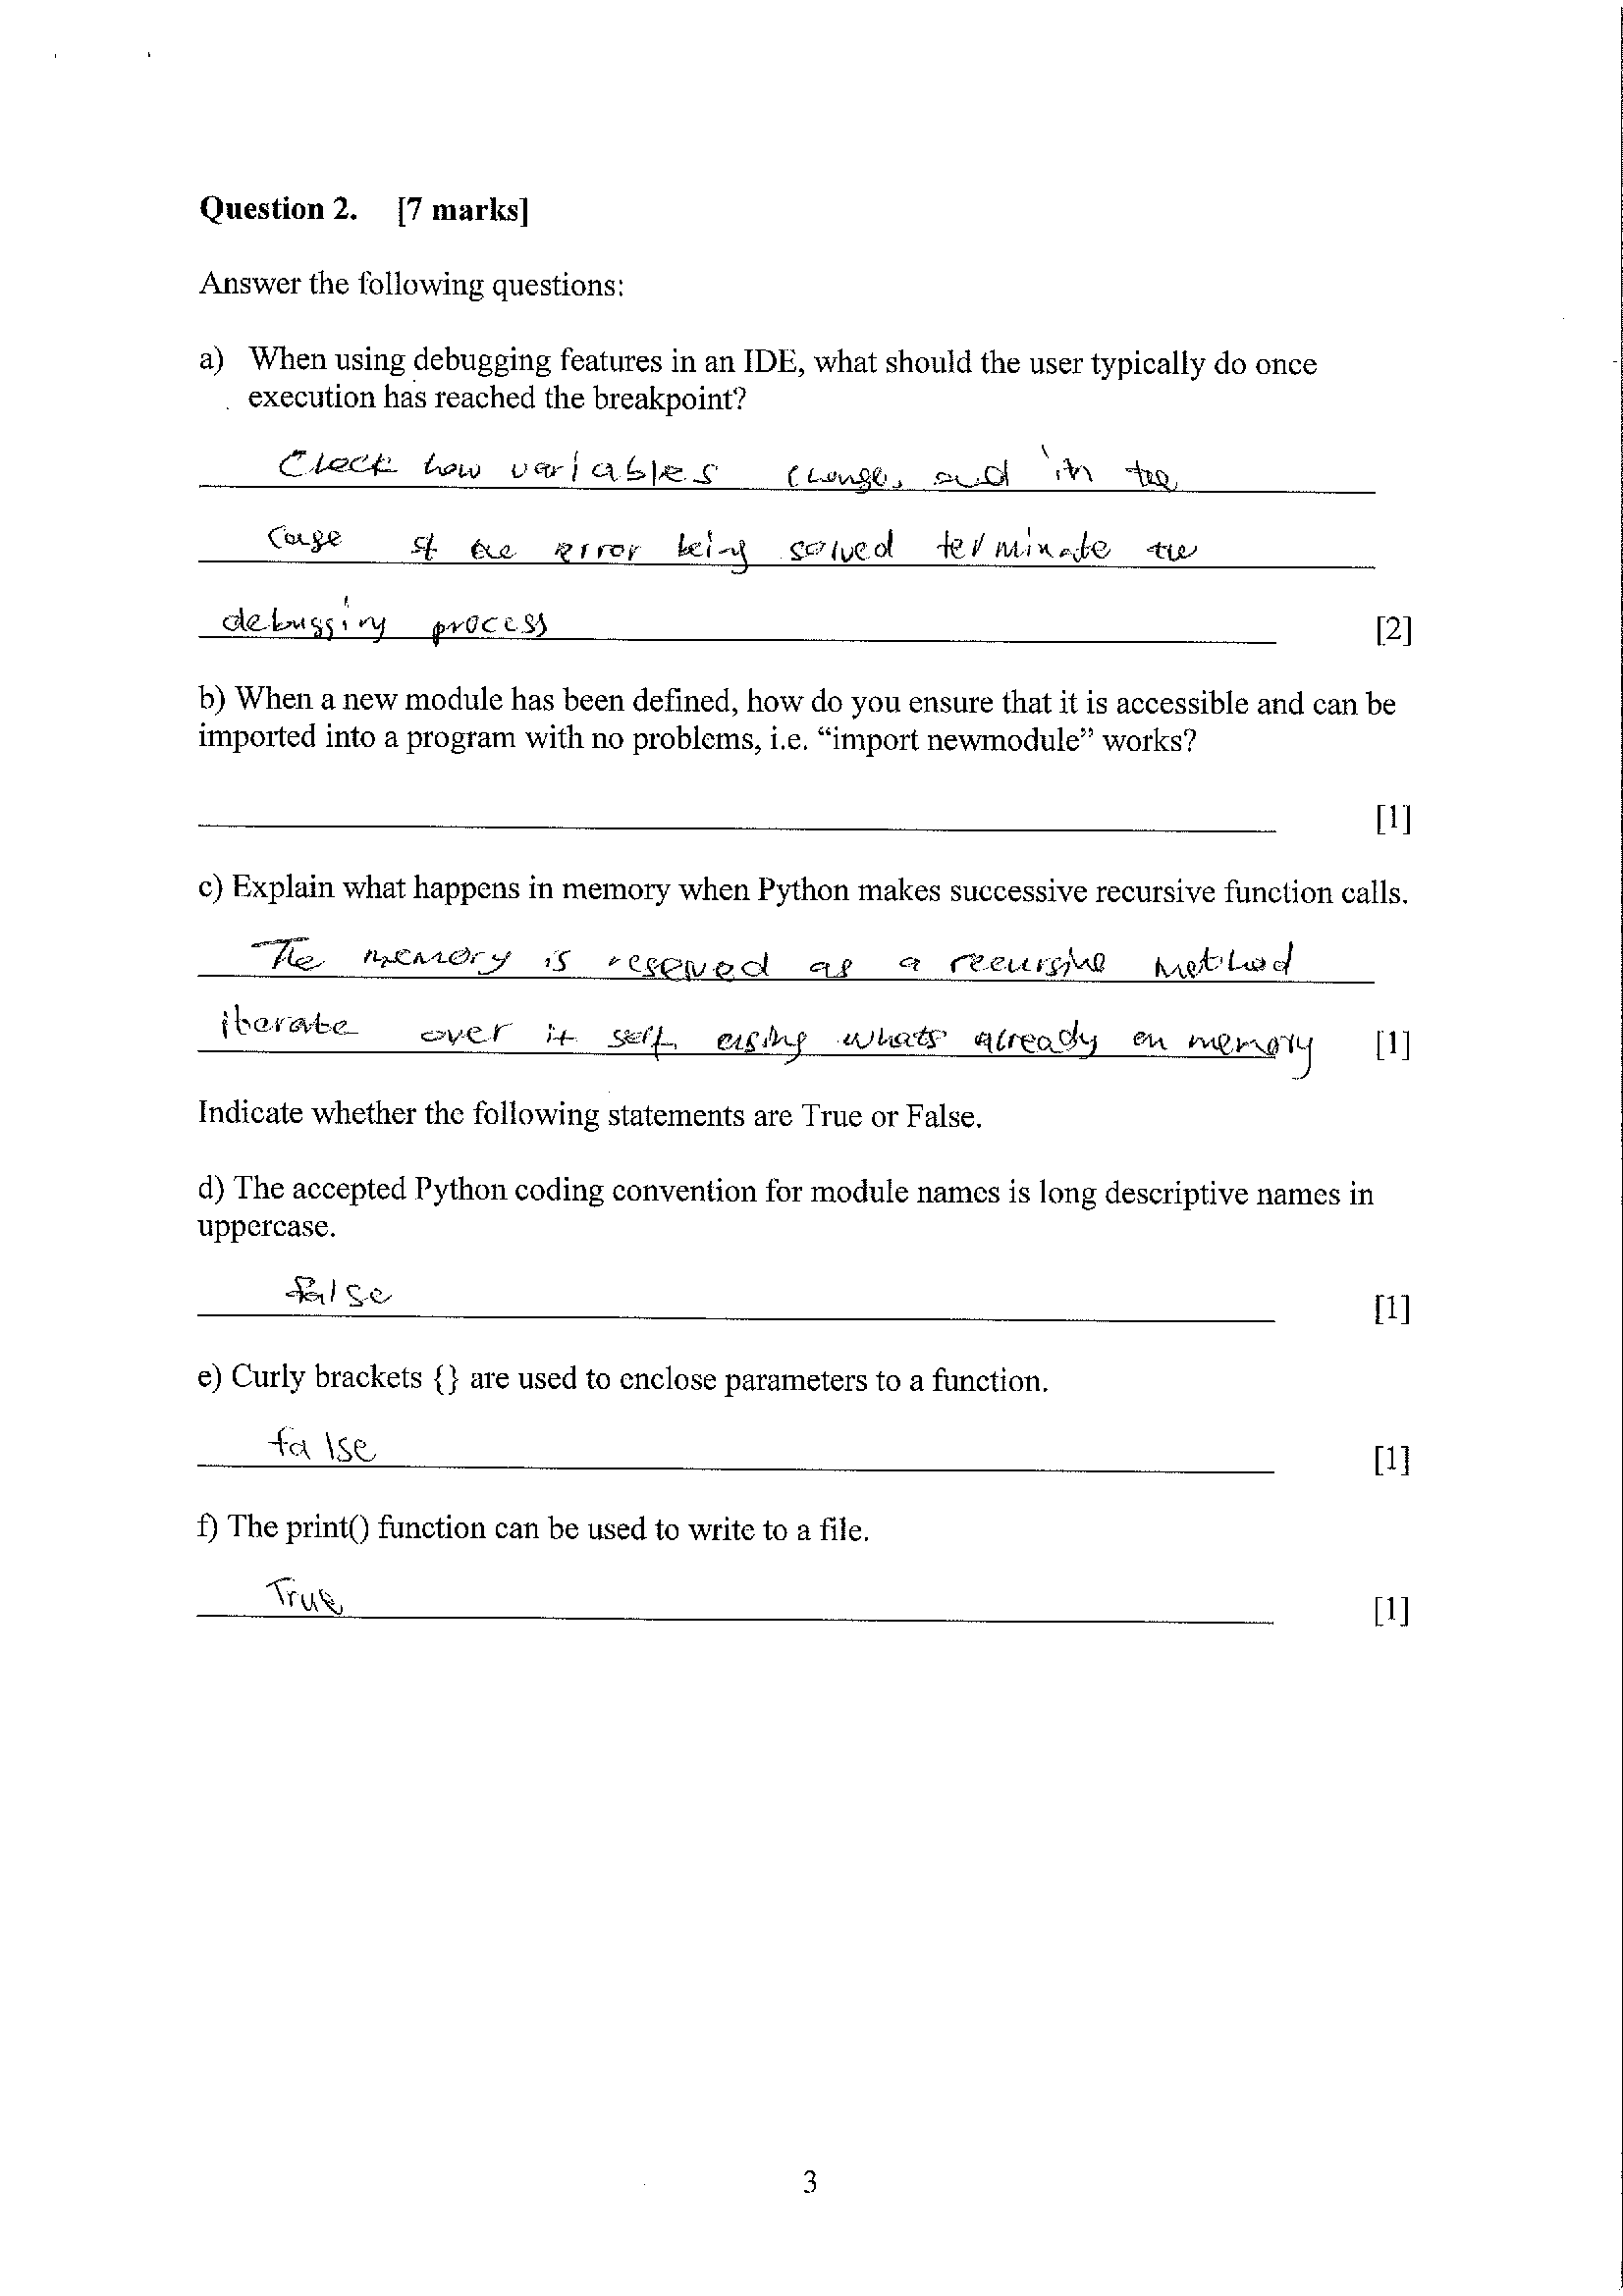 Question 2. [7 marks]
Answer the following questions:
a) When using debugging features in an IDE, what should the user typically do once
execution has reached the breakpoint?
Check how variables change, and in the
case of the error being solved terminate the
debugging process [2]
b) When a new module has been defined, how do you ensure that it is accessible and can be
imported into a program with no problems, i.e. “import newmodule” works?
[1]
c) Explain what happens in memory when Python makes successive recursive function calls.
The memory is reserved as a recursive method
iterate over it self, using whats already on memory [1]
Indicate whether the following statements are True or False.
d) The accepted Python coding convention for module names is long descriptive names in
uppercase.
false [1]
e) Curly brackets {} are used to enclose parameters to a function.
false [1]
f) The print() function can be used to write to a file.
True [1]
3